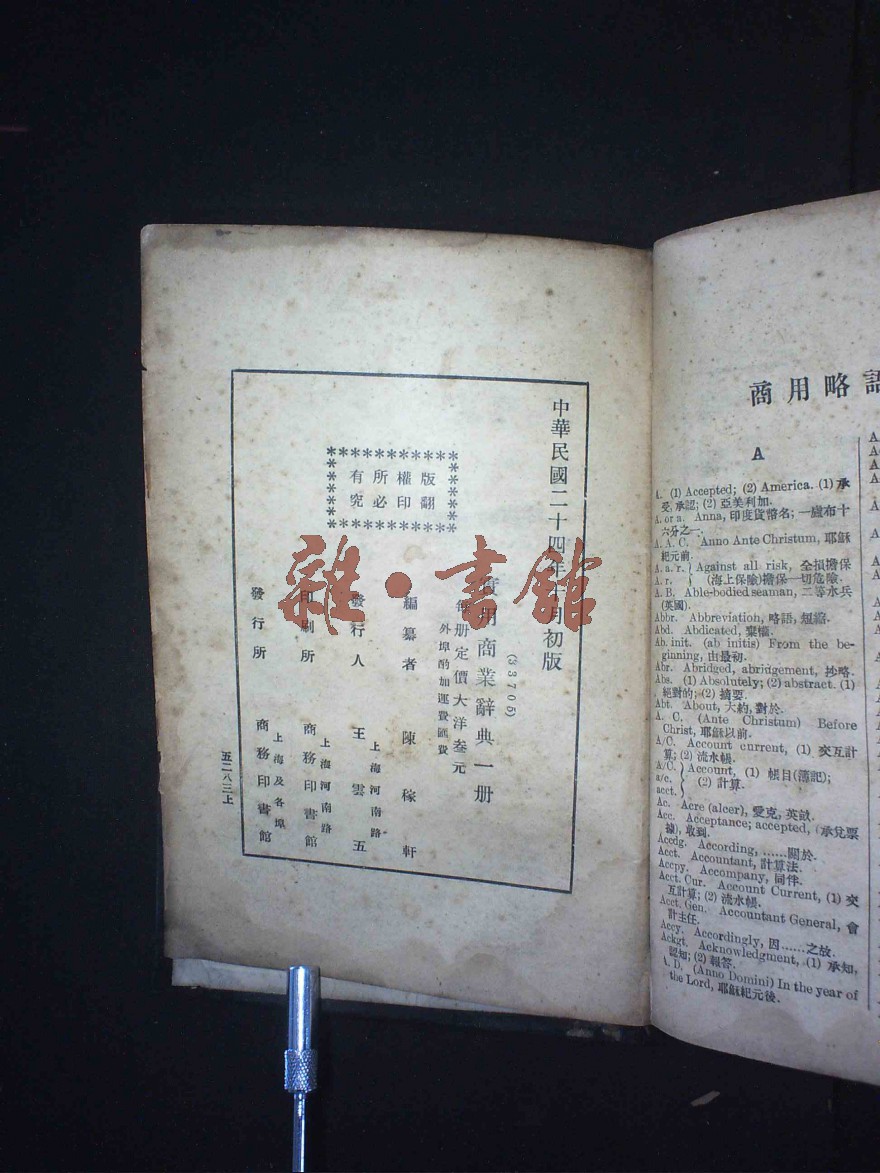 中華民國二十四年十月初版
(33705)
實用商業辭典一册
每册定價大洋叁元
外埠酌加運費匯費
編纂者 陳稼軒
上海河南路
發行人 王雲五
上海河南路
印刷所 商務印書館
上海及各埠
發行所 商務印書館
版權所有
翻印必究
五二八三上
雜·書館
商用略語
A
A. (1) Accepted; (2) America. (1) 承
受, 承認; (2) 亞美利加.
A. or a. Anna, 印度貨幣名; 一盧布十
六分之一.
A. A. C. Anno Ante Christum, 耶穌
紀元前.
A. a. r. } Against all risk, 全損擔保
A. r. } (海上保險)擔保一切危險.
A. B. Able-bodied seaman, 二等水兵
(英國).
Abbr. Abbreviation, 略語, 短縮.
Abd. Abdicated, 棄權.
Ab. init. (ab initis) From the be-
ginning, 由最初.
Abr. Abridged, abridgement, 抄略.
Abs. (1) Absolutely; (2) abstract. (1)
絕對的; (2) 摘要.
Abt. About, 大約, 對於.
A. C. (Ante Christum) Before
Christ, 耶穌以前.
A/C. Account current, (1) 交互計
算; (2) 流水帳.
A/C. } Account, (1) 帳目(簿記);
a/c. } (2) 計算.
acct. }
Ac. Acre (alcer), 愛克, 英畝.
Acc. Acceptance; accepted, (承兌票
據), 收到.
Accdg. According, ……關於.
Acct. Accountant, 計算法.
Accpy. Accompany, 同伴.
Acct. Cur. Account Current, (1) 交
互計算; (2) 流水帳.
Acct. Gen. Accountant General, 會
計主任.
Accy. Accordingly, 因……之故.
Ackgt. Acknowledgment, (1) 承知,
認知; (2) 報答.
A. D. (Anno Domini) In the year of
the Lord, 耶穌紀元後.